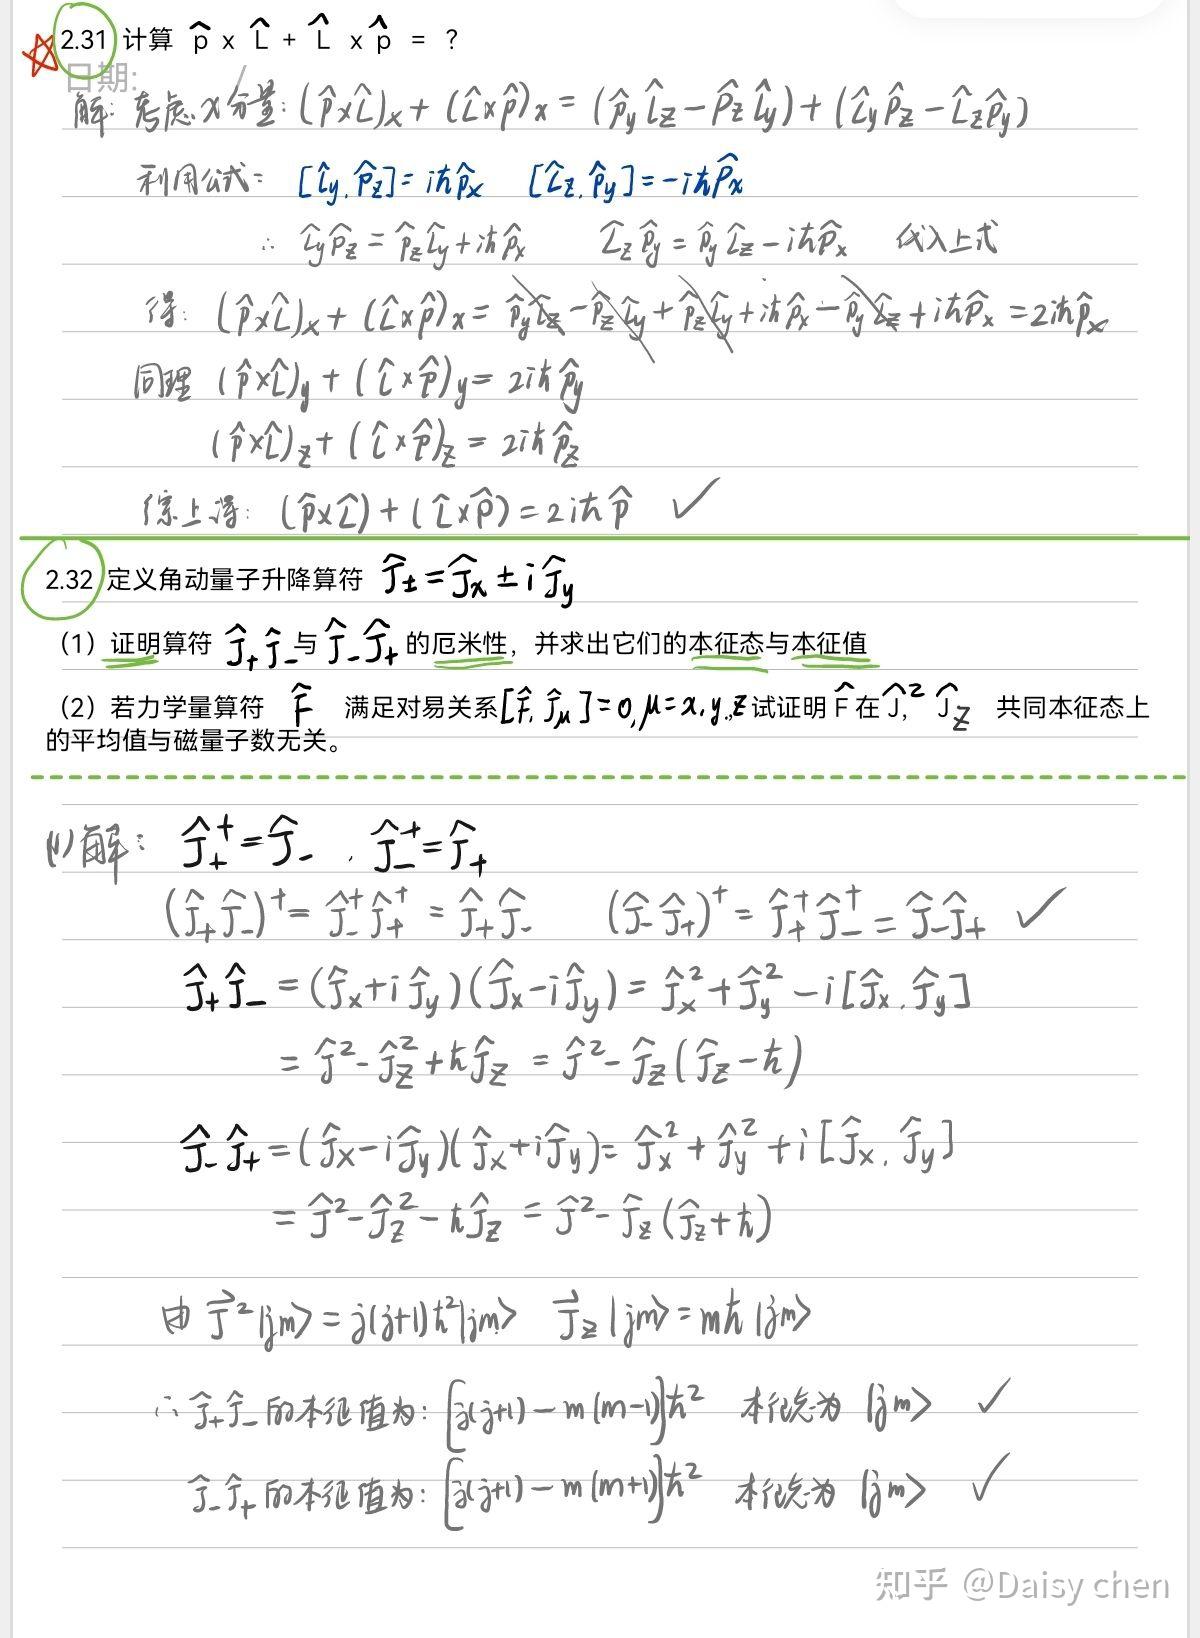 2.31 计算 p̂ x L̂ + L̂ x p̂ = ?
日期:
解: 考虑x分量: (p̂×L̂)x + (L̂×p̂)x = (p̂yL̂z − p̂zL̂y) + (L̂yp̂z − L̂zp̂y)
利用公式: [L̂y, p̂z] = iħp̂x [L̂z, p̂y] = −iħp̂x
∴ L̂yp̂z = p̂zL̂y + iħp̂x L̂zp̂y = p̂yL̂z − iħp̂x 代入上式
得: (p̂×L̂)x + (L̂×p̂)x = p̂yL̂z − p̂zL̂y + p̂zL̂y + iħp̂x − p̂yL̂z + iħp̂x = 2iħp̂x
同理 (p̂×L̂)y + (L̂×p̂)y = 2iħp̂y
(p̂×L̂)z + (L̂×p̂)z = 2iħp̂z
综上得: (p̂×L̂) + (L̂×p̂) = 2iħp̂ ✓
2.32 定义角动量子升降算符 Ĵ± = Ĵx ± iĴy
（1）证明算符 Ĵ+Ĵ− 与 Ĵ−Ĵ+ 的厄米性，并求出它们的本征态与本征值
（2）若力学量算符 F̂ 满足对易关系[F̂, Ĵμ] = 0, μ = x, y, z 试证明 F̂ 在 Ĵ², Ĵz 共同本征态上
的平均值与磁量子数无关。
(1)解: Ĵ+⁺ = Ĵ−, Ĵ−⁺ = Ĵ+
(Ĵ+Ĵ−)⁺ = Ĵ−⁺Ĵ+⁺ = Ĵ+Ĵ− (Ĵ−Ĵ+)⁺ = Ĵ+⁺Ĵ−⁺ = Ĵ−Ĵ+ ✓
Ĵ+Ĵ− = (Ĵx + iĴy)(Ĵx − iĴy) = Ĵx² + Ĵy² − i[Ĵx, Ĵy]
= Ĵ² − Ĵz² + ħĴz = Ĵ² − Ĵz(Ĵz − ħ)
Ĵ−Ĵ+ = (Ĵx − iĴy)(Ĵx + iĴy) = Ĵx² + Ĵy² + i[Ĵx, Ĵy]
= Ĵ² − Ĵz² − ħĴz = Ĵ² − Ĵz(Ĵz + ħ)
由 J⃗²|jm> = j(j+1)ħ²|jm> J⃗z|jm> = mħ|jm>
∴ Ĵ+Ĵ− 的本征值为: [j(j+1) − m(m−1)]ħ² 本征态为 |jm> ✓
Ĵ−Ĵ+ 的本征值为: [j(j+1) − m(m+1)]ħ² 本征态为 |jm> ✓
知乎 @Daisy chen